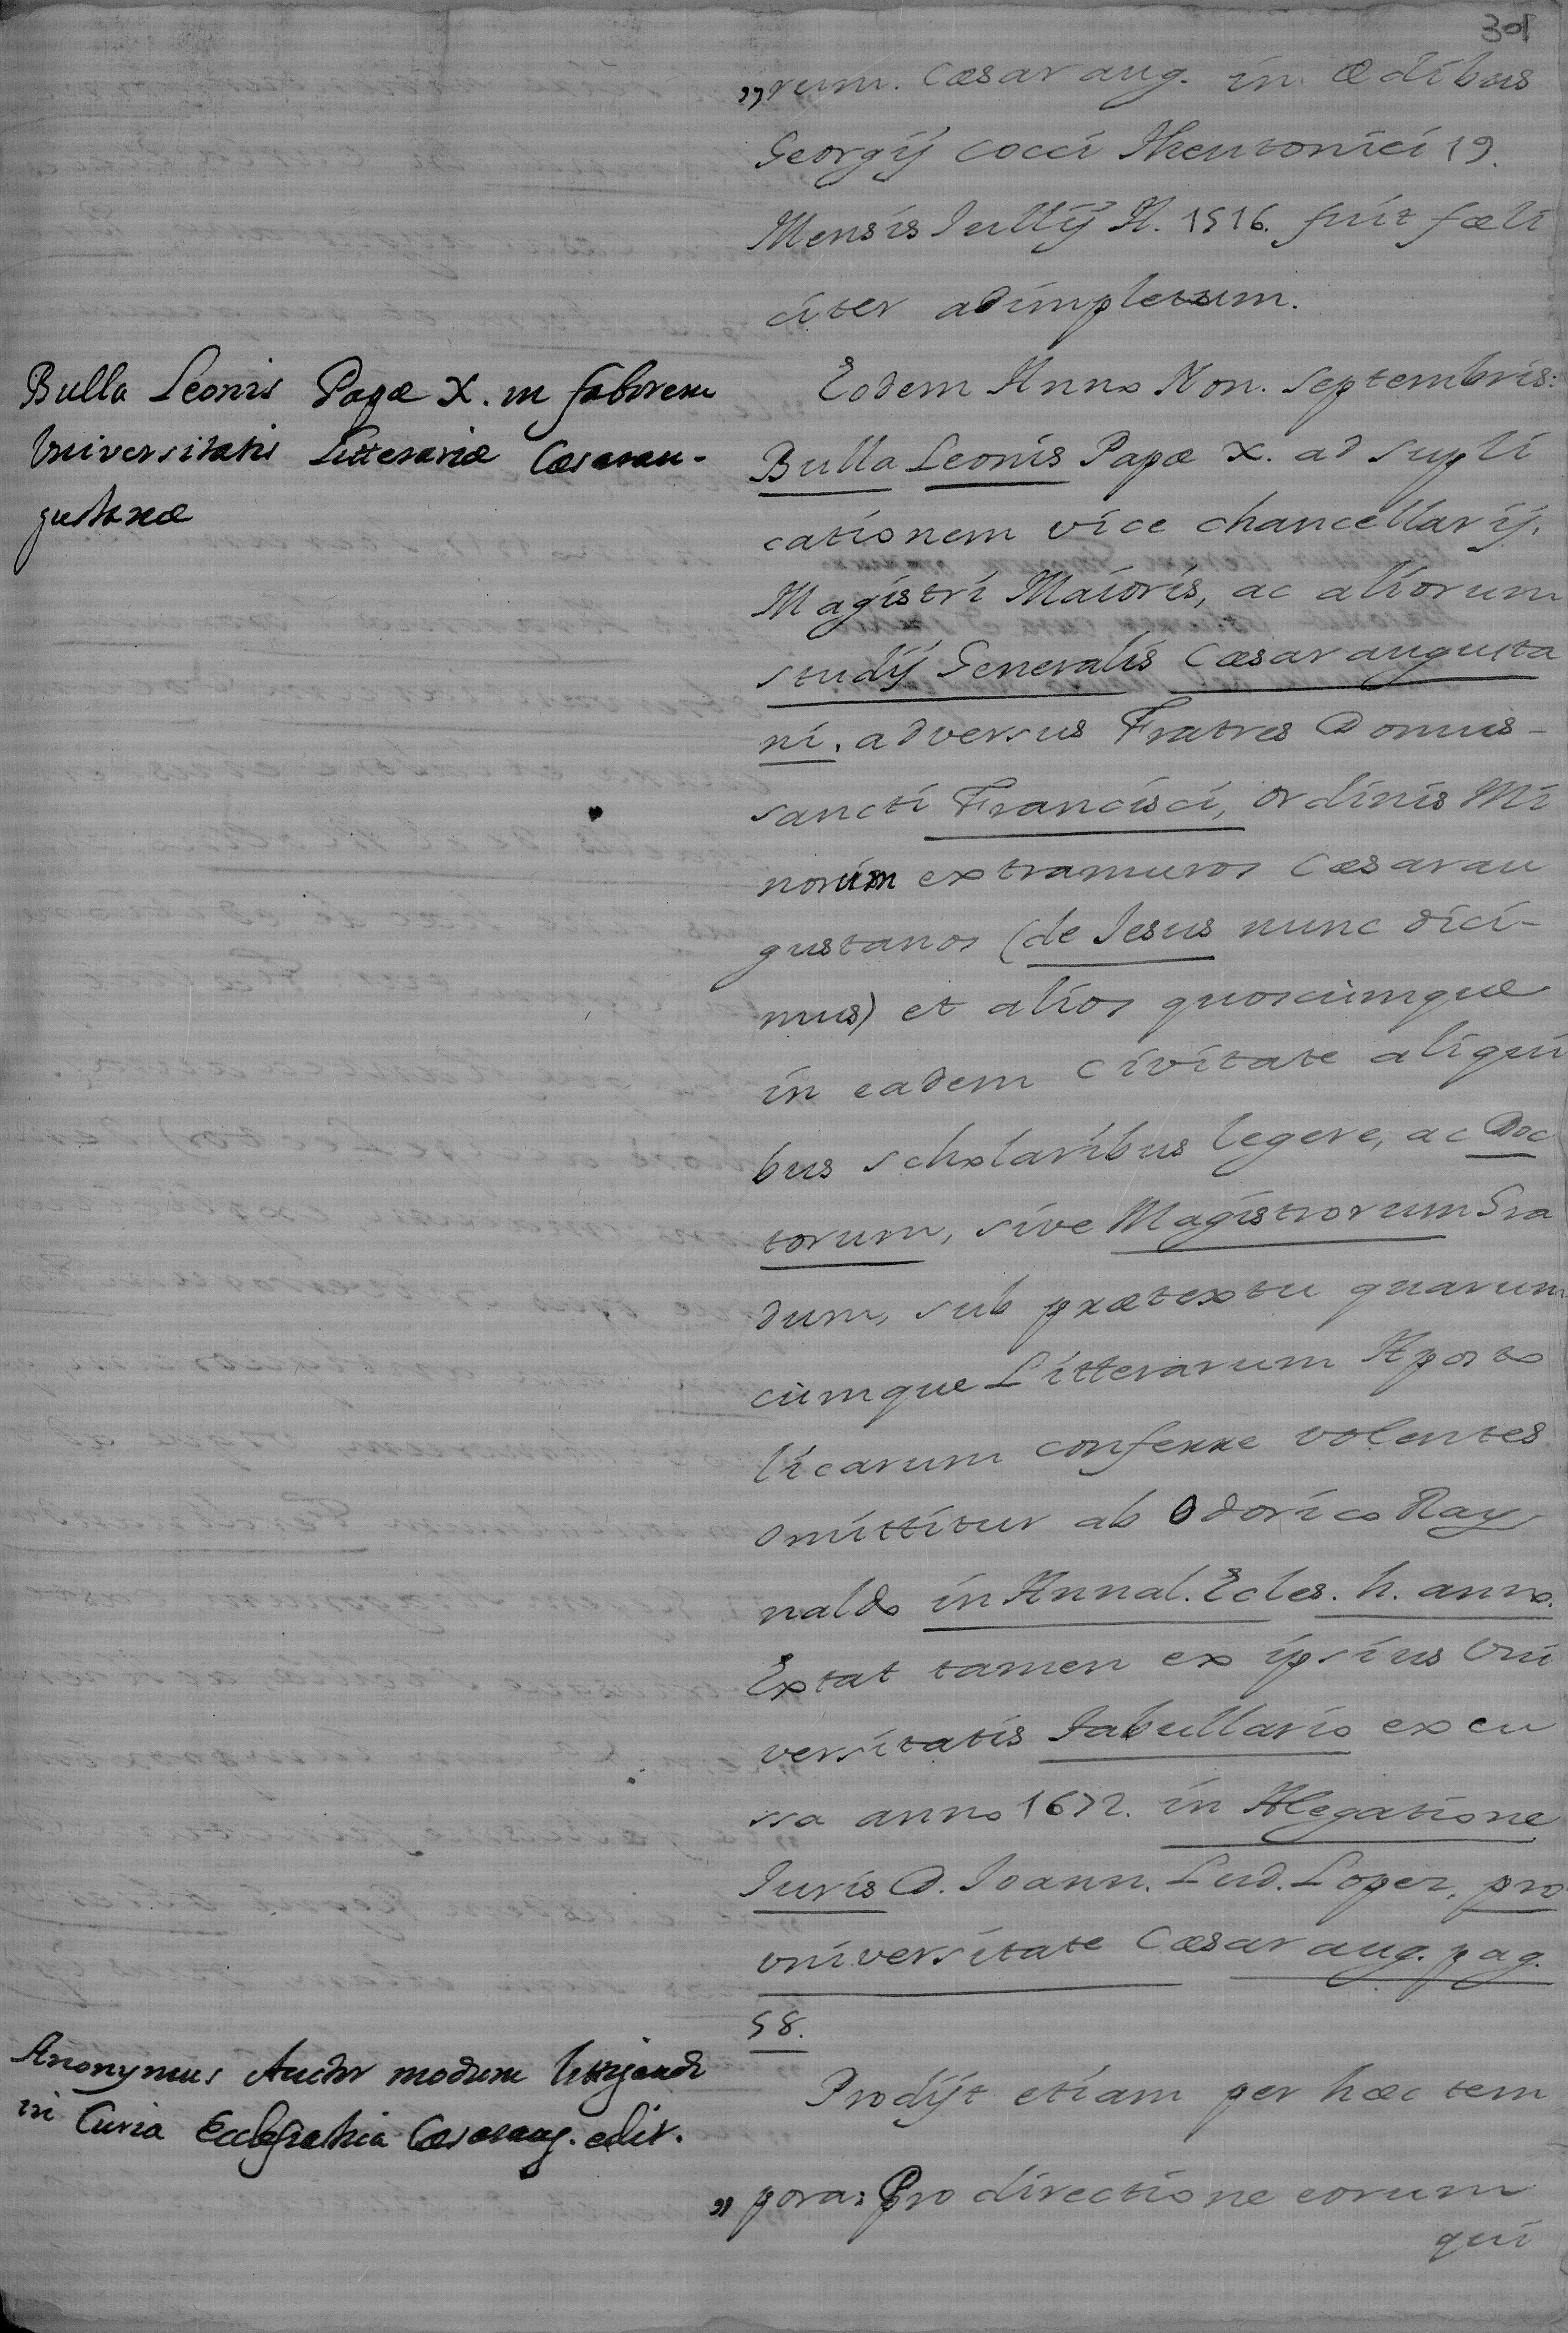 301
„rum. Cæsaraug. in Ædibus
Georgij Cocci Theutonici 19.
Mensis Jullij A. 1516. fuit fæli
citer adimpletum.
Bulla Leonis Papæ X. in faborem
Universitatis Litterariæ Cæsarau-
gustanæ
Eodem Anno Non. Septembris:
Bulla Leonis Papæ X. ad supli
cationem vice chancellarij,
Magistri Maioris, ac aliorum
studij Generalis Cæsaraugusta
ni, adversus Fratres Domus-
sancti Francisci, Ordinis Mi
norum extramuros Cæsarau
gustanos (de Iesus nunc dici-
mus) et alios quoscumque
in eadem Civitate aliqui
bus scholaribus legere, ac Doc
torum, sive Magistrorum Gra
dum, sub prætextu quarum
cumque Litterarum Aposto
licarum conferre volentes
omittitur ab Odorico Ray
naldo in Annal. Ecles. h. anno.
Extat tamen ex ipsius Uni
versitatis tabullario excu
ssa anno 1672. in Alegatione
Iuris D. Ioann. Lud. Lopez, pro
universitate Cæsaraug. pag.
58.
Anonymus Auctor modum litigandi
in Curia Ecclesiastica Cæsaraug. edit.
Prodijt etiam per hæc tem
„ pora: Pro directione eorum
qui